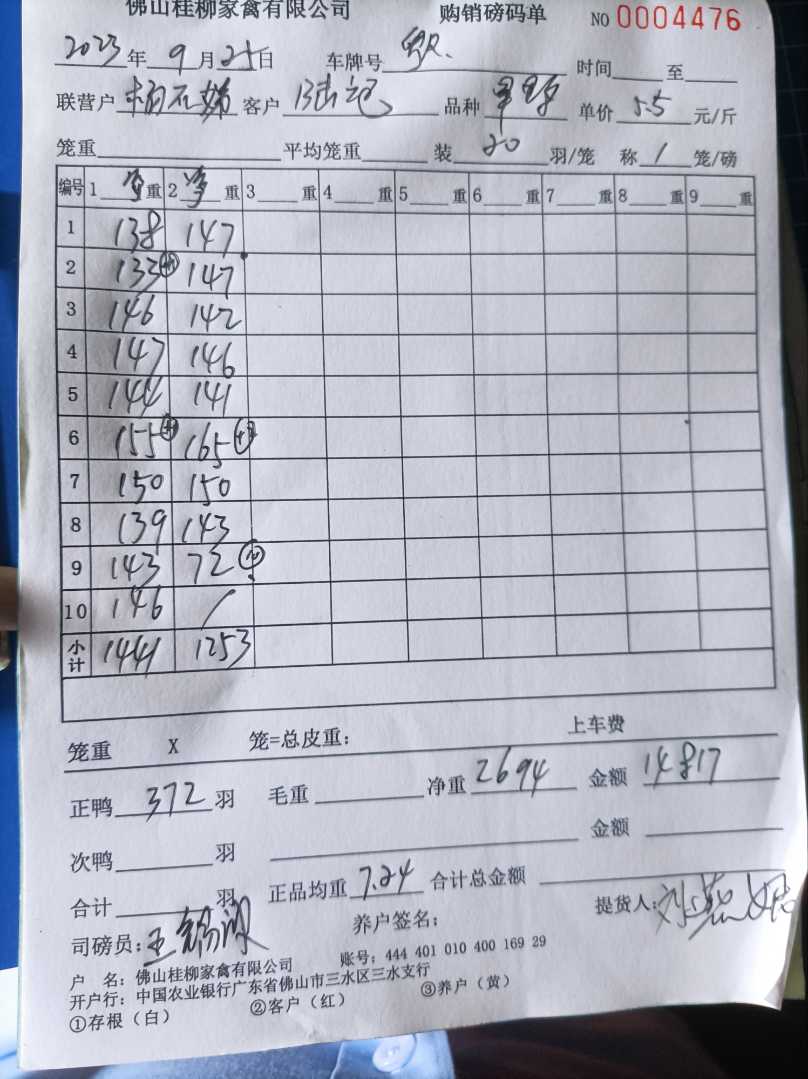 佛山桂柳家禽有限公司 购销磅码单 NO 0004476
2023年 9月25日 车牌号 时间 至
联营户 客户 品种 单价 5.5 元/斤
笼重 平均笼重 装 20 羽/笼 称 1 笼/磅
编号 1 重 2 净 重 3 重 4 重 5 重 6 重 7 重 8 重 9 重
1 138 147
2 133 147
3 146 142
4 147 146
5 144 141
6 155 165
7 150 150
8 139 143
9 143 72
10 146 /
小计 1441 1253
笼重 X 笼=总皮重: 上车费
正鸭 372 羽 毛重 净重 2694 金额 14817
次鸭 羽 金额
合计 羽 正品均重 7.24 合计总金额
司磅员: 王 养户签名: 提货人: 刘
户 名: 佛山桂柳家禽有限公司 账号: 444 401 010 400 169 29
开户行: 中国农业银行广东省佛山市三水区三水支行
①存根(白) ②客户(红) ③养户(黄)